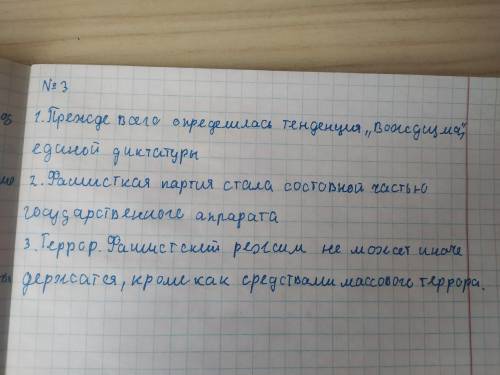 №3
1. Прежде всего определилась тенденция „Вождизма",
единой диктатуры
2. Фашисткая партия стала составной частью
государственного аппарата
3. Террор. Фашистский режим не может иначе
держатся, кроме как средствами массового террора.